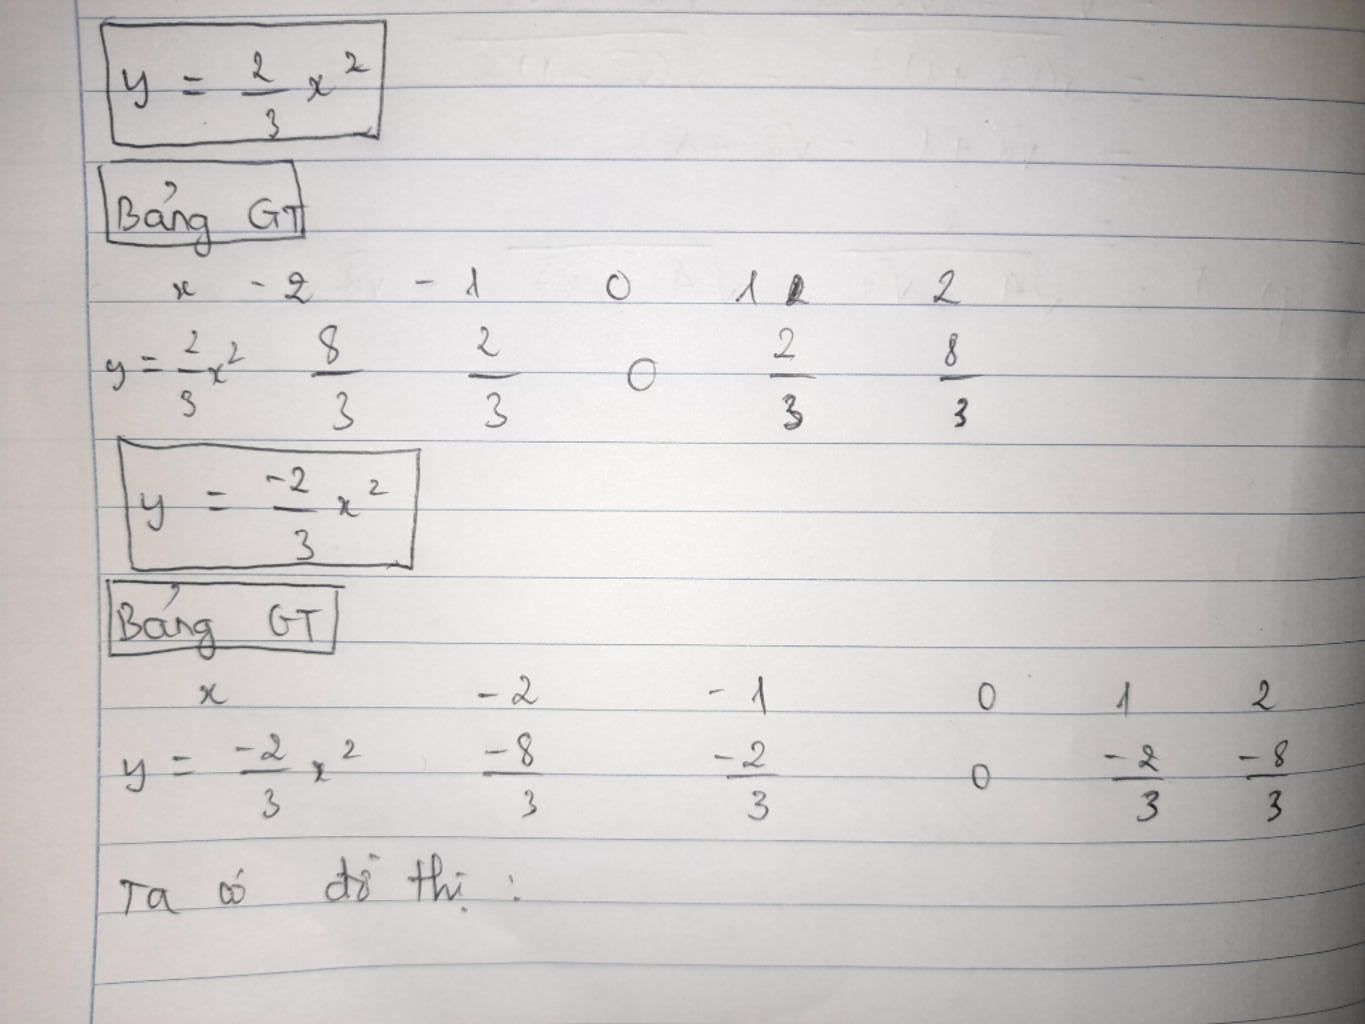 y = 2/3 x²
Bảng GT
x -2 -1 0 1 2
y = 2/3 x² 8/3 2/3 0 2/3 8/3
y = -2/3 x²
Bảng GT
x -2 -1 0 1 2
y = -2/3 x² -8/3 -2/3 0 -2/3 -8/3
Ta có đồ thị :